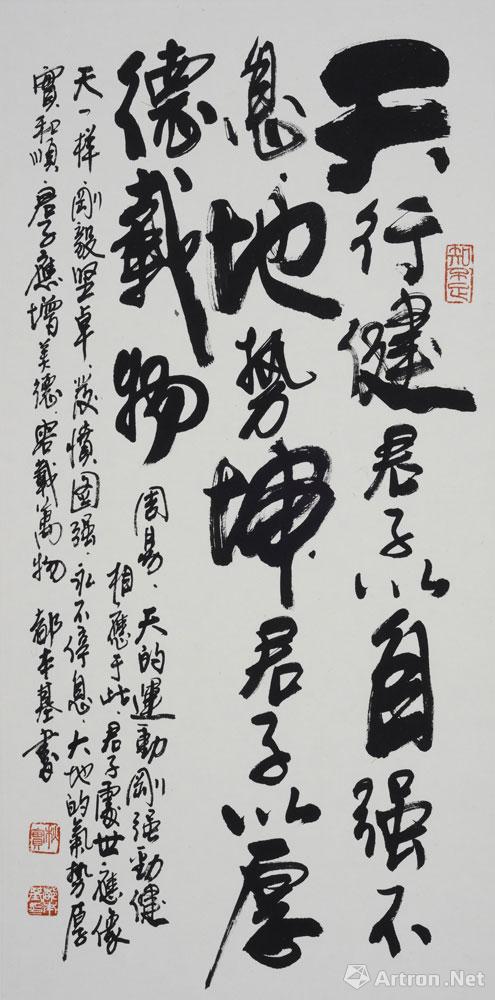 天行健君子以自强不
息地势坤君子以厚
德载物
周易、天的運動剛强勁健
相應于此、君子處世應像
天一樣剛毅堅卓、發憤图强、永不停息、大地的氣势厚
實和順、君子應增美德、容載萬物 都本基書
Artron.Net